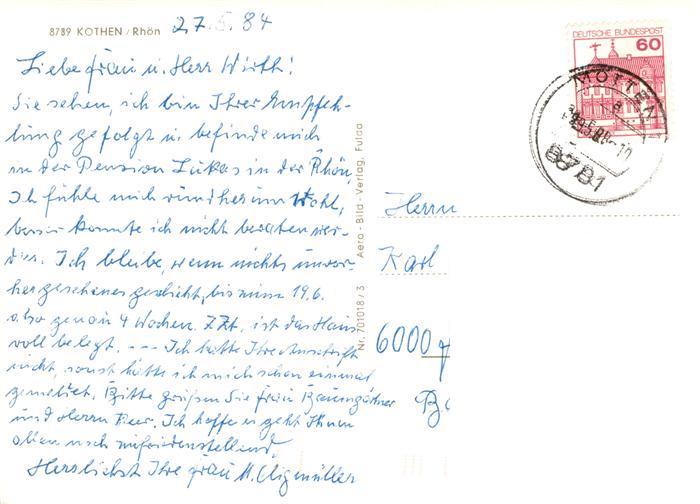 8789 KOTHEN / Rhön 27.5.84
Liebe Frau u. Herr Wirth!
Sie sehen, ich bin Ihrer Empfeh-
lung gefolgt u. befinde mich
in der Pension Lukas in der Rhön,
Ich fühle mich rundherum Wohl,
besser konnte ich nicht beraten wer-
den. Ich bleibe, wenn nichts unvor-
hergesehenes geschieht, bis zum 19.6.
also genau 4 Wochen. Z.Zt. ist das Haus
voll belegt. --- Ich hatte Ihre Anschrift
nicht, sonst hätte ich mich schon einmal
gemeldet. Bitte grüßen Sie Frau Baumgärtner
und Herrn Beer. Ich hoffe es geht Ihnen
allen noch zufriedenstellend.
Herzlichst Ihre Frau M.
Nr. 701018/3 Aero - Bild - Verlag, Fulda
DEUTSCHE BUNDESPOST
60
8781
Herrn
Karl
6000